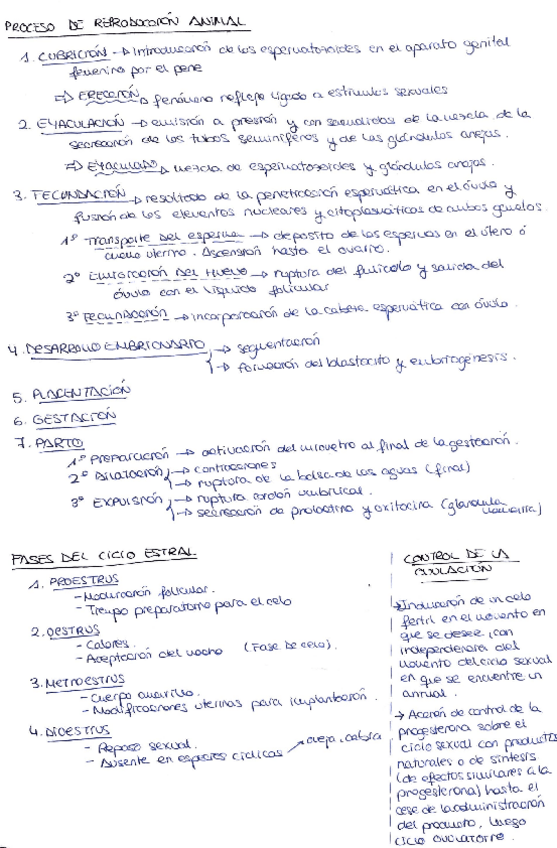 PROCESO DE REPRODUCCIÓN ANIMAL
1. CUBRICIÓN → Introducción de los espermatozoides en el aparato genital
femenino por el pene
⇒ ERECCIÓN → fenómeno reflejo ligado a estímulos sexuales
2. EYACULACIÓN → emisión a presión y con sacudidas de la mezcla de la
secreción de los tubos seminíferos y de las glándulas anejas.
⇒ EYACULADO → mezcla de espermatozoides y glándulas anejas.
3. FECUNDACIÓN → resultado de la penetración espermática en el óvulo y
fusión de los elementos nucleares y citoplasmáticos de ambos gametos.
1º Transporte del esperma → depósito de los espermas en el útero ó
cuello uterino. Ascensión hasta el ovario.
2º EMIGRACIÓN DEL HUEVO → ruptura del folículo y salida del
óvulo con el líquido folicular
3º FECUNDACIÓN → incorporación de la cabeza espermática con óvulo.
4. DESARROLLO EMBRIONARIO → segmentación
→ formación del blastocito y embriogénesis.
5. PLACENTACIÓN
6. GESTACIÓN
7. PARTO
1º PREPARACIÓN → activación del miometro al final de la gestación.
2º DILATACIÓN → contracciones
→ ruptura de la bolsa de las aguas (final)
3º EXPULSIÓN → ruptura cordón umbilical.
→ secreción de prolactina y oxitocina (glándula
mamaria)
FASES DEL CICLO ESTRAL
1. PROESTRUS
- Maduración folicular.
- Tiempo preparatorio para el celo
2. OESTRUS
- Calores.
- Aceptación del macho (Fase de celo).
3. METROESTRUS
- Cuerpo amarillo.
- Modificaciones uterinas para implantación.
4. DIOESTRUS
- Reposo sexual.
- Ausente en especies cíclicas → oveja, cabra
CONTROL DE LA
OVULACIÓN
→ Inducción de un celo
fértil en el momento en
que se desee, con
independencia del
momento del ciclo sexual
en que se encuentre un
animal.
→ Acción de control de la
progesterona sobre el
ciclo sexual con productos
naturales o de síntesis
(de efectos similares a la
progesterona) hasta el
cese de la administración
del producto, luego
ciclo ovulatorio.